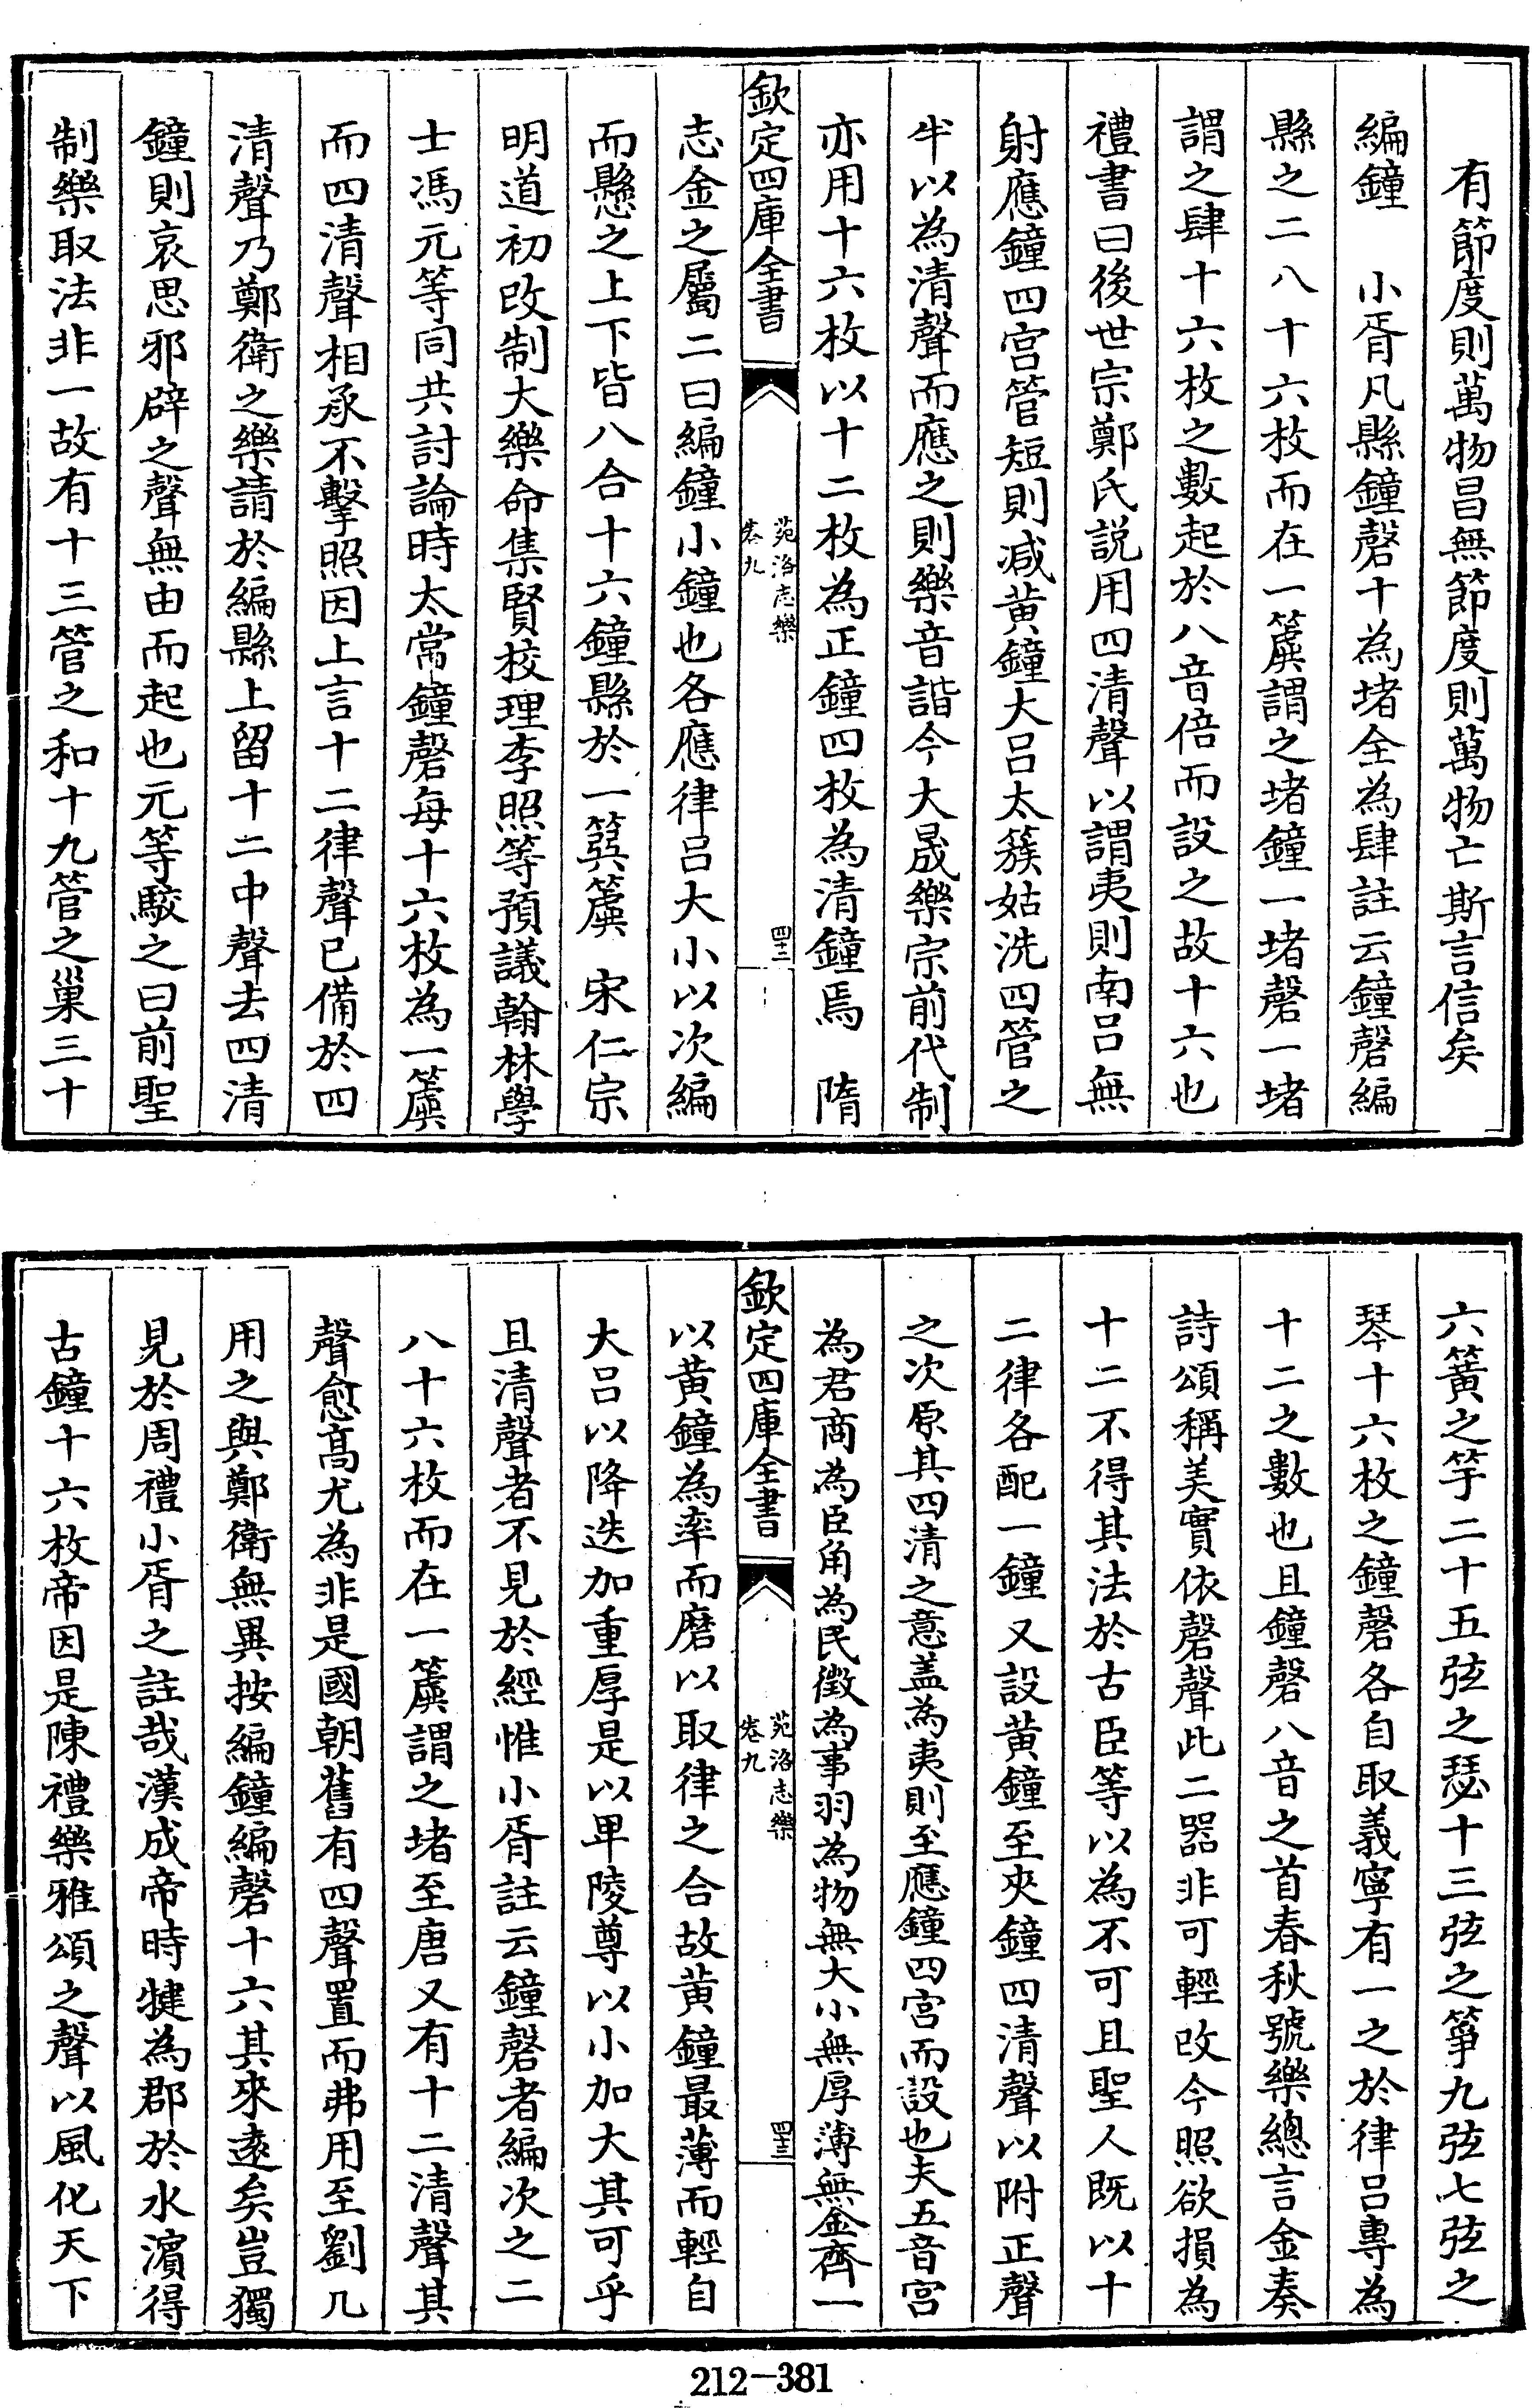 有節度則萬物昌無節度則萬物亡斯言信矣
編鐘　小胥凡縣鐘磬十為堵全為肆註云鐘磬編
縣之二八十六枚而在一簴謂之堵鐘一堵磬一堵
謂之肆十六枚之數起於八音倍而設之故十六也
禮書曰後世宗鄭氏説用四清聲以謂夷則南呂無
射應鐘四宫管短則减黄鐘大呂太簇姑洗四管之
半以為清聲而應之則樂音諧今大晟樂宗前代制
亦用十六枚以十二枚為正鐘四枚為清鐘焉　隋
欽定四庫全書
苑洛志樂
卷九
四十二
志金之屬二曰編鐘小鐘也各應律呂大小以次編
而懸之上下皆八合十六鐘縣於一簨簴　宋仁宗
明道初改制大樂命集賢校理李照等預議翰林學
士馮元等同共討論時太常鐘磬每十六枚為一簴
而四清聲相承不擊照因上言十二律聲已備於四
清聲乃鄭衛之樂請於編縣上留十二中聲去四清
鐘則哀思邪辟之聲無由而起也元等駮之曰前聖
制樂取法非一故有十三管之和十九管之巢三十
六簧之竽二十五弦之瑟十三弦之箏九弦七弦之
琴十六枚之鐘磬各自取義寧有一之於律呂專為
十二之數也且鐘磬八音之首春秋號樂總言金奏
詩頌稱美實依磬聲此二器非可輕改今照欲損為
十二不得其法於古臣等以為不可且聖人既以十
二律各配一鐘又設黄鐘至夾鐘四清聲以附正聲
之次原其四清之意盖為夷則至應鐘四宫而設也夫五音宫
為君商為臣角為民徵為事羽為物無大小無厚薄無金齊一
欽定四庫全書
苑洛志樂
卷九
四十三
以黄鐘為率而磨以取律之合故黄鐘最薄而輕自
大呂以降迭加重厚是以卑陵尊以小加大其可乎
且清聲者不見於經惟小胥註云鐘磬者編次之二
八十六枚而在一簴謂之堵至唐又有十二清聲其
聲愈髙尤為非是國朝舊有四聲置而弗用至劉几
用之與鄭衛無異按編鐘編磬十六其來逺矣豈獨
見於周禮小胥之註哉漢成帝時犍為郡於水濵得
古鐘十六枚帝因是陳禮樂雅頌之聲以風化天下
212-381